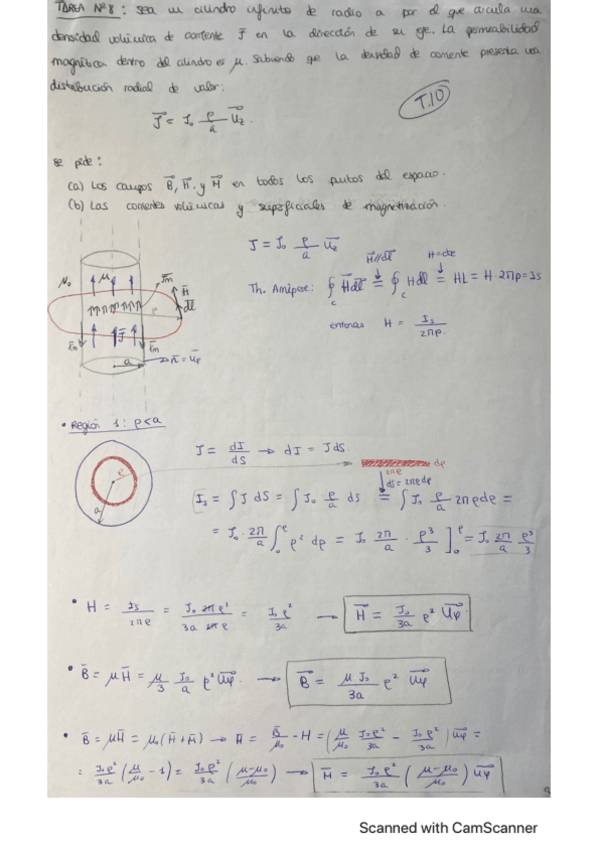 TAREA Nº8: Sea un cilindro infinito de radio a por el que circula una
densidad volúmica de corriente J⃗ en la dirección de su eje. La permeabilidad
magnética dentro del cilindro es μ. Sabiendo que la densidad de corriente presenta una
distribución radial de valor:
J⃗ = J₀ ρ/a u⃗z.
T.10
se pide:
(a) Los campos B⃗, H⃗ y M⃗ en todos los puntos del espacio.
(b) Las corrientes volúmicas y superficiales de magnetización.
J = J₀ ρ/a u⃗z
H⃗//dl⃗ H=cte
Th. Ampere: ∮c H⃗dl⃗ = ∮c Hdl = HL = H·2πρ = Is
entonces H = Is/2πρ.
μ₀ μ J⃗m H⃗ dl⃗
ρ
J⃗
i⃗m i⃗m
a n⃗ = u⃗ρ
• Región 1: ρ<a
J = dI/dS → dI = JdS
ρ a
dρ
2πρ
dS = 2πρdρ
Is = ∫ J dS = ∫ J₀ ρ/a dS = ∫ J₀ ρ/a 2πρdρ =
= J₀ · 2π/a ∫₀^ρ ρ² dρ = J₀ 2π/a · ρ³/3 ]₀^ρ = J₀ 2π/a ρ³/3
• H = Is/2πρ = J₀ 2πρ³/3a 2πρ = J₀ρ²/3a → H⃗ = J₀/3a ρ² u⃗φ
• B⃗ = μH⃗ = μ/3 J₀/a ρ² u⃗φ → B⃗ = μJ₀/3a ρ² u⃗φ
• B⃗ = μH⃗ = μ₀(H⃗+M⃗) → M⃗ = B⃗/μ₀ - H = (μ/μ₀ J₀ρ²/3a - J₀ρ²/3a) u⃗φ =
= J₀ρ²/3a (μ/μ₀ - 1) = J₀ρ²/3a (μ-μ₀/μ₀) → M⃗ = J₀ρ²/3a (μ-μ₀/μ₀) u⃗φ
Scanned with CamScanner